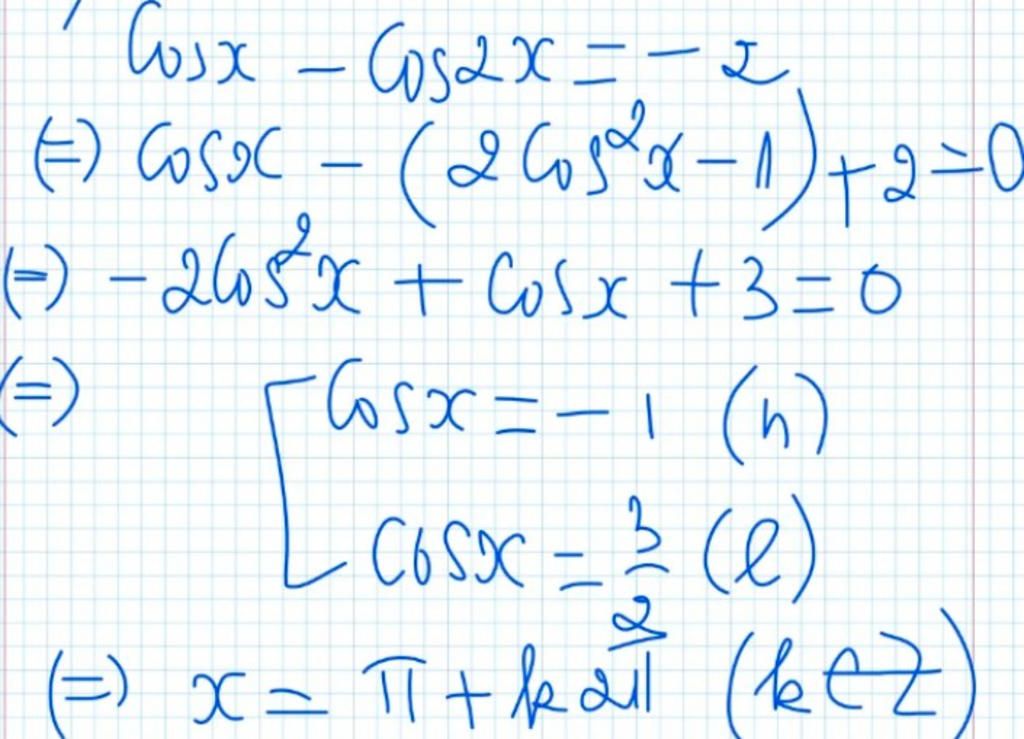 Cosx - Cos2x = -2
(=) Cosx - (2Cos²x - 1) + 2 = 0
(=) -2Cos²x + Cosx + 3 = 0
(=) [ Cosx = -1 (n)
Cosx = 3/2 (l)
(=) x = π + k2π (k ∈ Z)